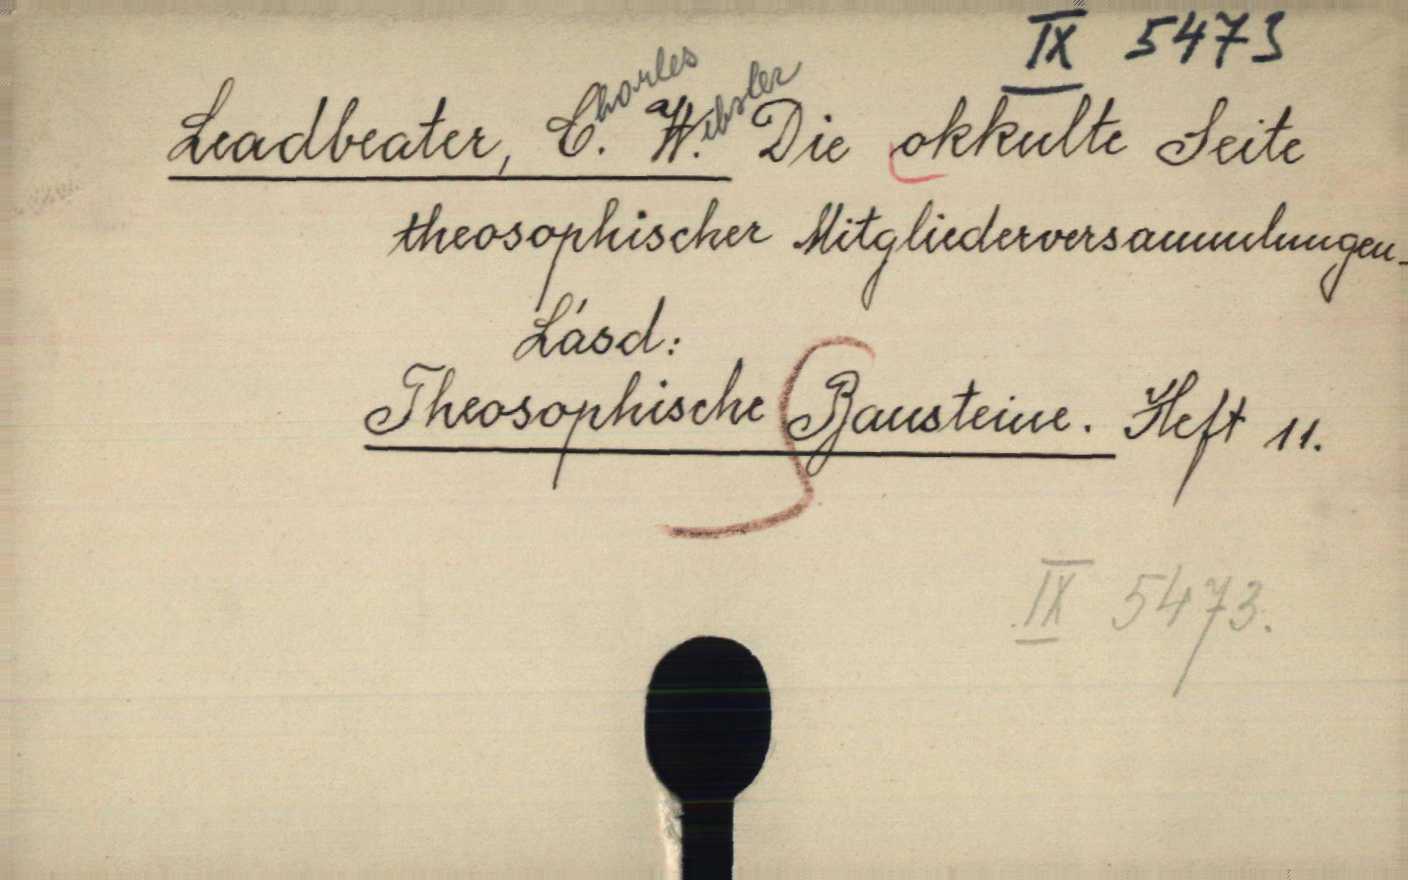 IX 5473
Leadbeater, C.harles W.ebster Die okkulte Seite
theosophischer Mitgliederversammlungen.
Lásd:
Theosophische Bausteine. Heft 11.
IX 5473.